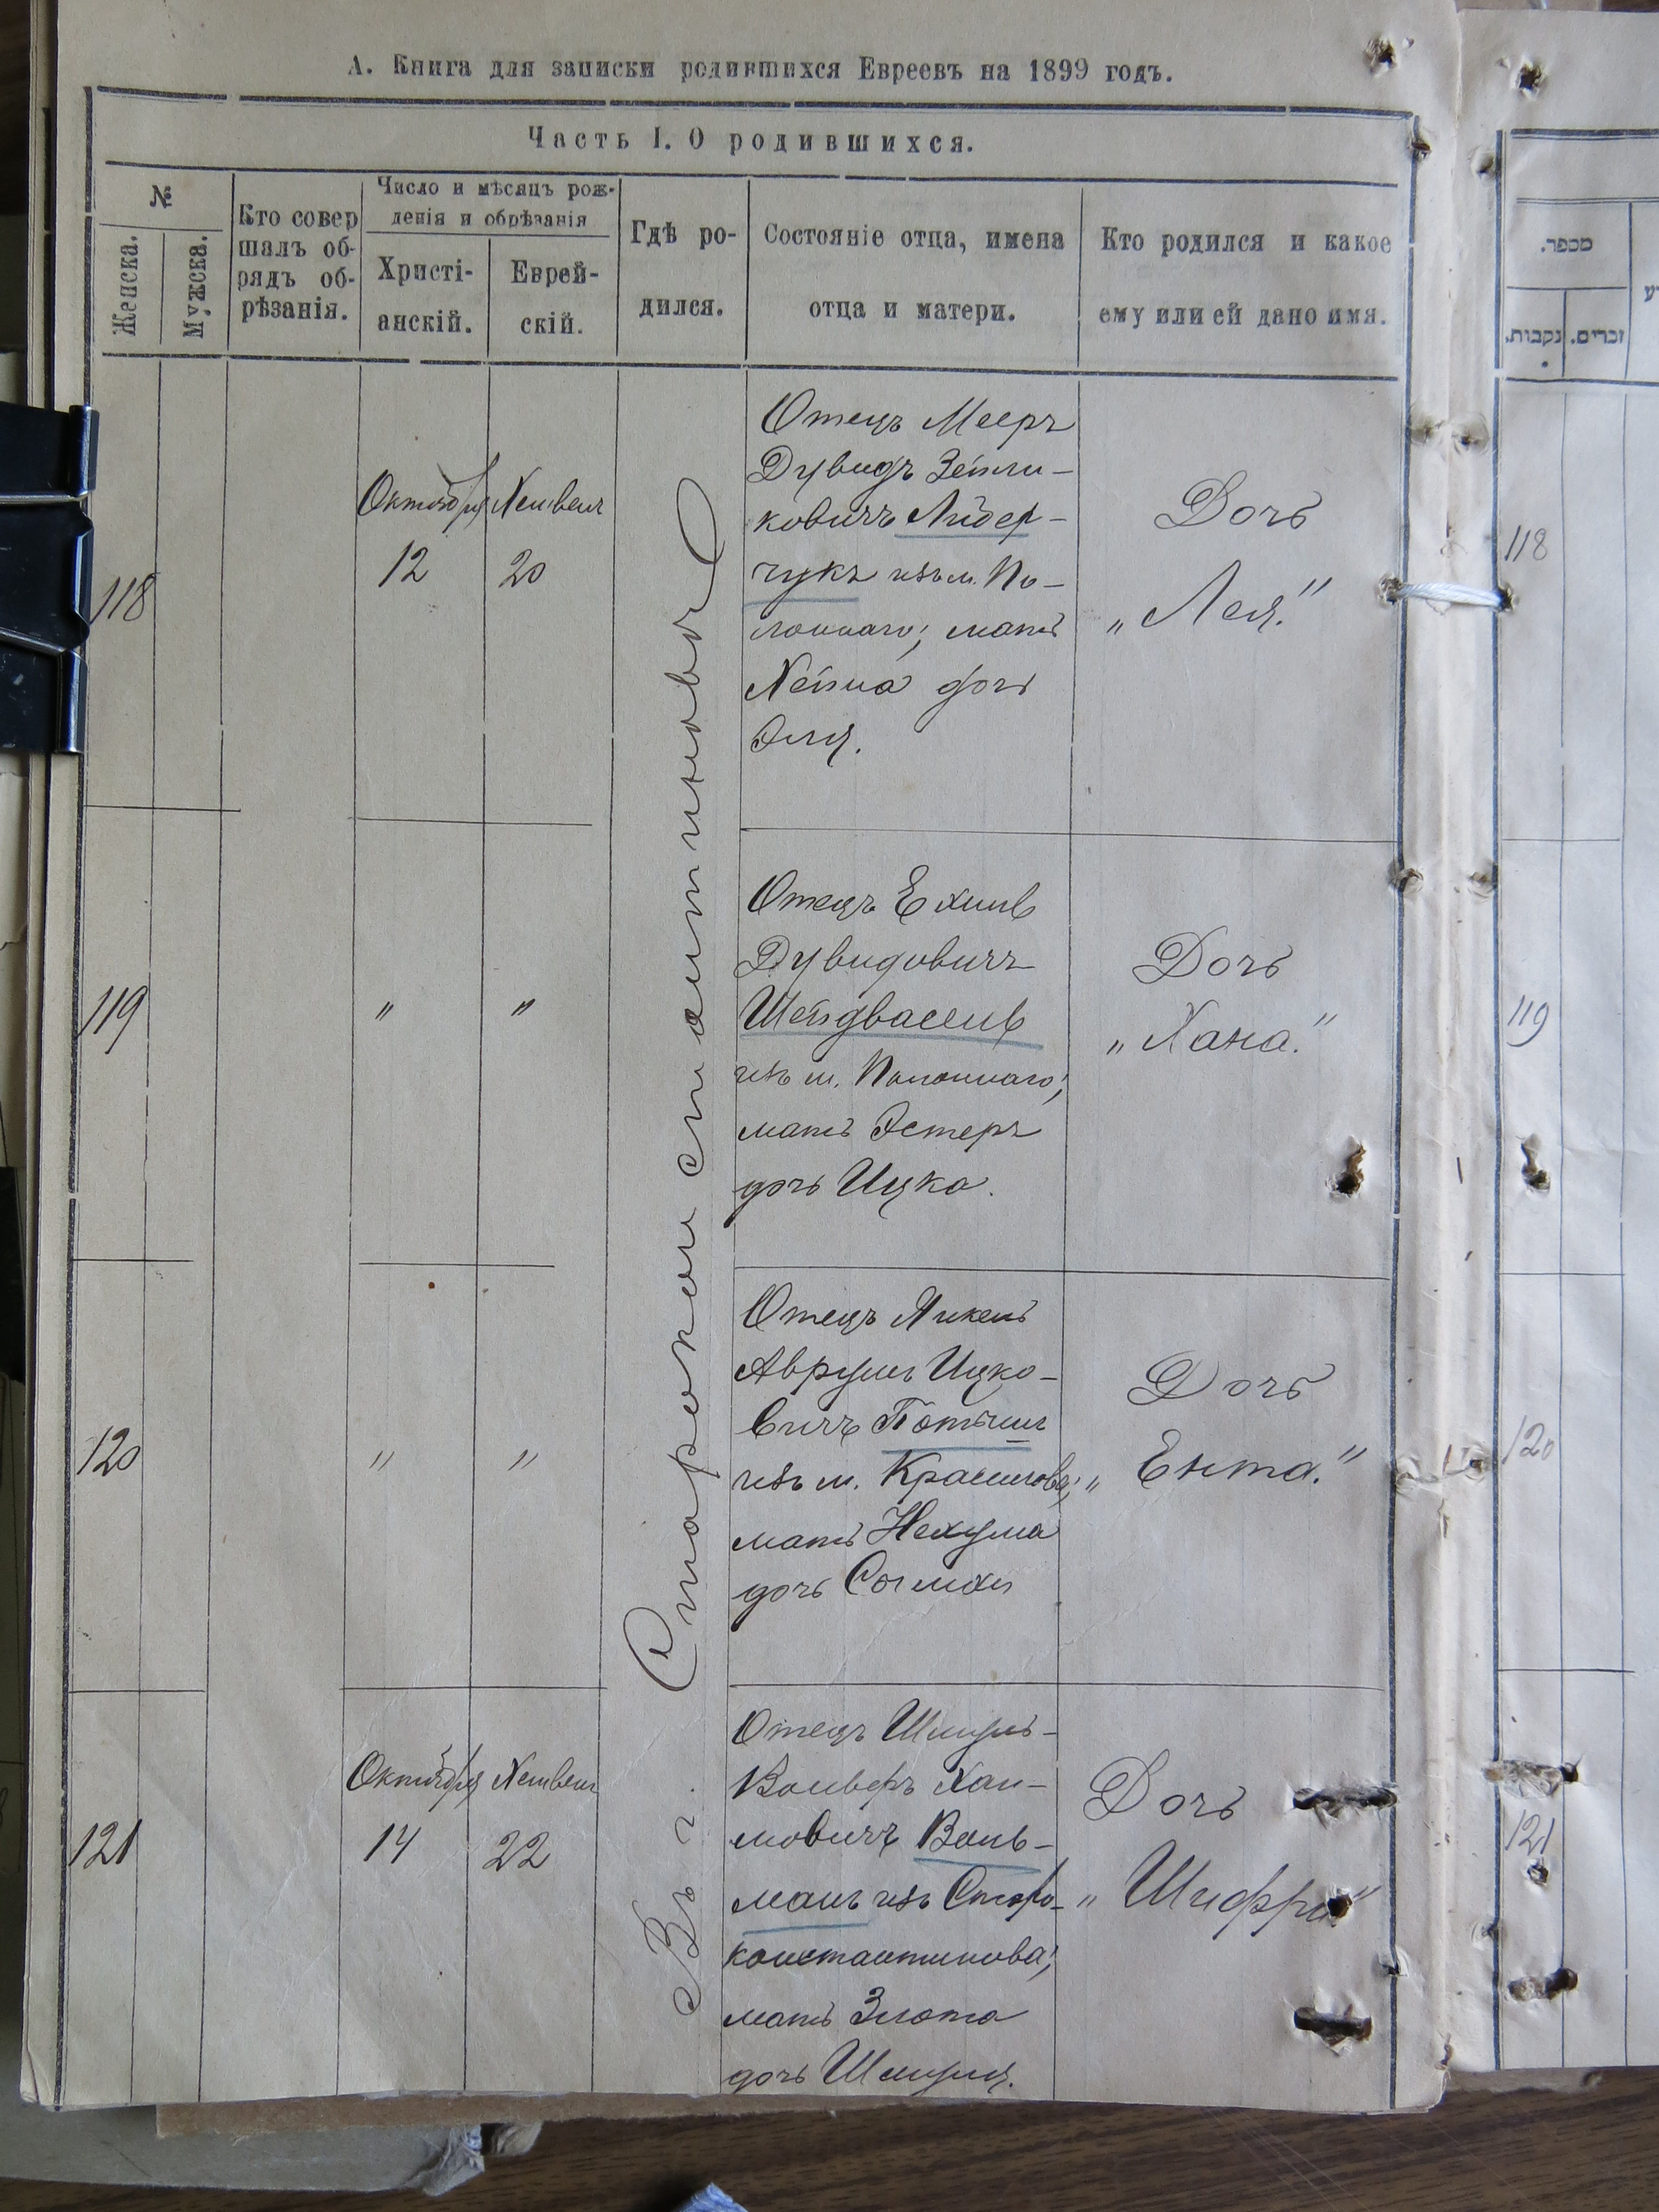 А. Книга для записки родившихся Евреевъ на 1899 годъ.
Часть I. О родившихся.
№
Женска.
Мужска.
Кто совер
шалъ об-
рядъ об-
рѣзанія.
Число и мѣсяцъ рож-
денія и обрѣзанія
Христі-
анскій.
Еврей-
скій.
Гдѣ ро-
дился.
Состояніе отца, имена
отца и матери.
Кто родился и какое
ему или ей дано имя.
Въ г. Староконстантиновѣ
118
Октября
12
Хешвенъ
20
Отецъ Мееръ
Дувидъ Зейли-
ковичъ Лидер-
чукъ изъ м. По-
лоннаго; мать
Хейна дочь
Эля.
Дочь
„Лея."
119
"
"
Отецъ Ехиль
Дувидовичъ
Шейдвассеръ
изъ м. Полоннаго;
мать Эстеръ
дочь Ицка.
Дочь
„Хана."
120
"
"
Отецъ
Аврумъ Ицко-
вичъ
изъ м. Красилова;
мать Нехума
дочь
Дочь
„Ента."
121
Октября
14
Хешвенъ
22
Отецъ Шмуль-
Вольфъ Хаи-
мовичъ Валь-
манъ изъ Старо-
константинова;
мать Злота
дочь Шмуля.
Дочь
„Шифра"
מספר.
נקבות.
זכרים.
118
119
120
121